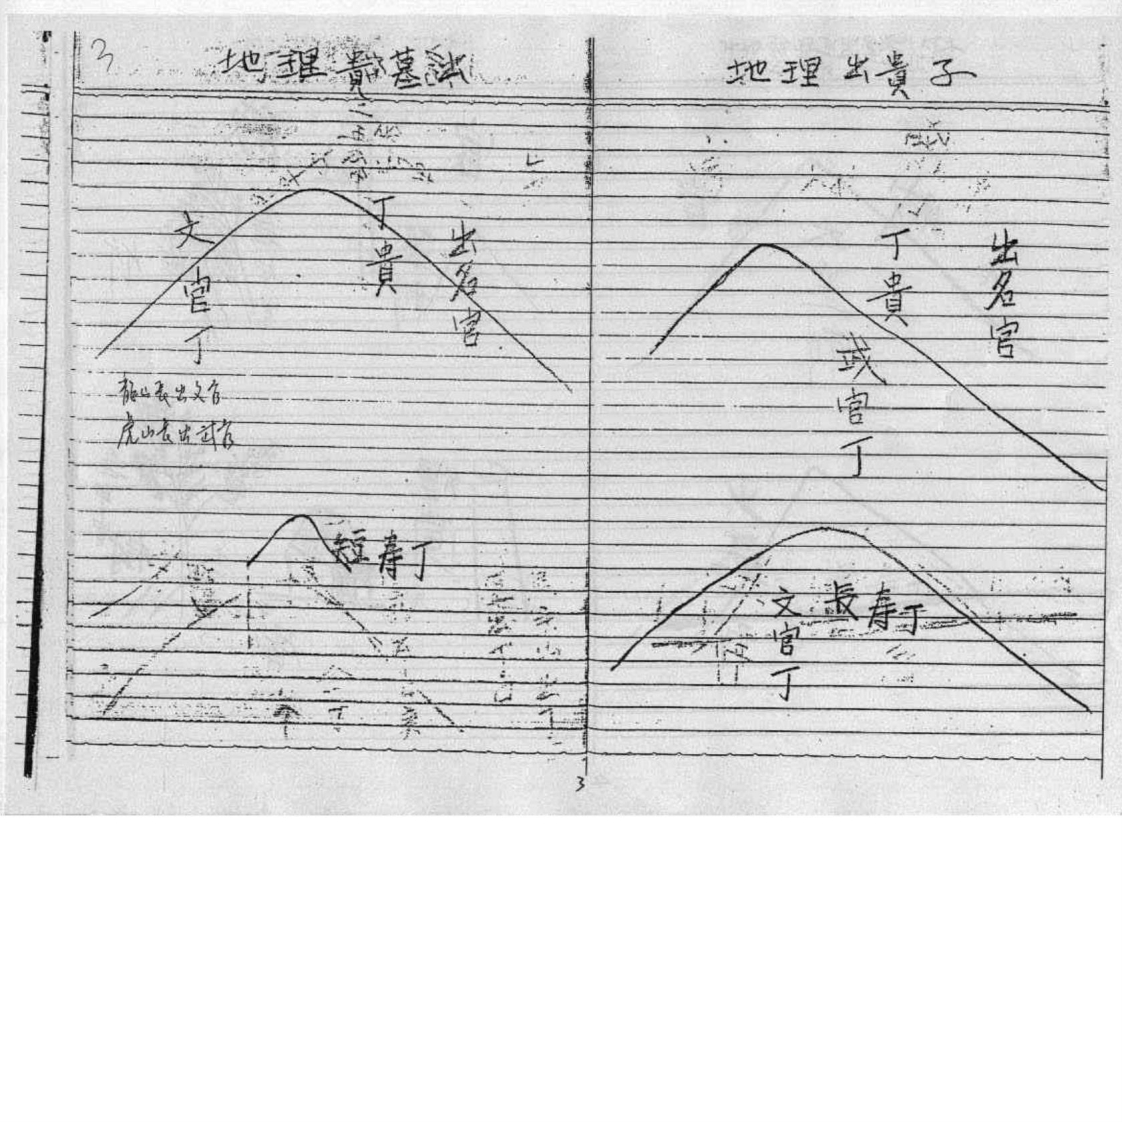 3
地理
墓法
文官丁
丁貴
出名官
龍山長出文官
虎山長出武官
短壽丁
地理出貴子
丁貴
出名官
武官丁
文官丁
長壽丁
3